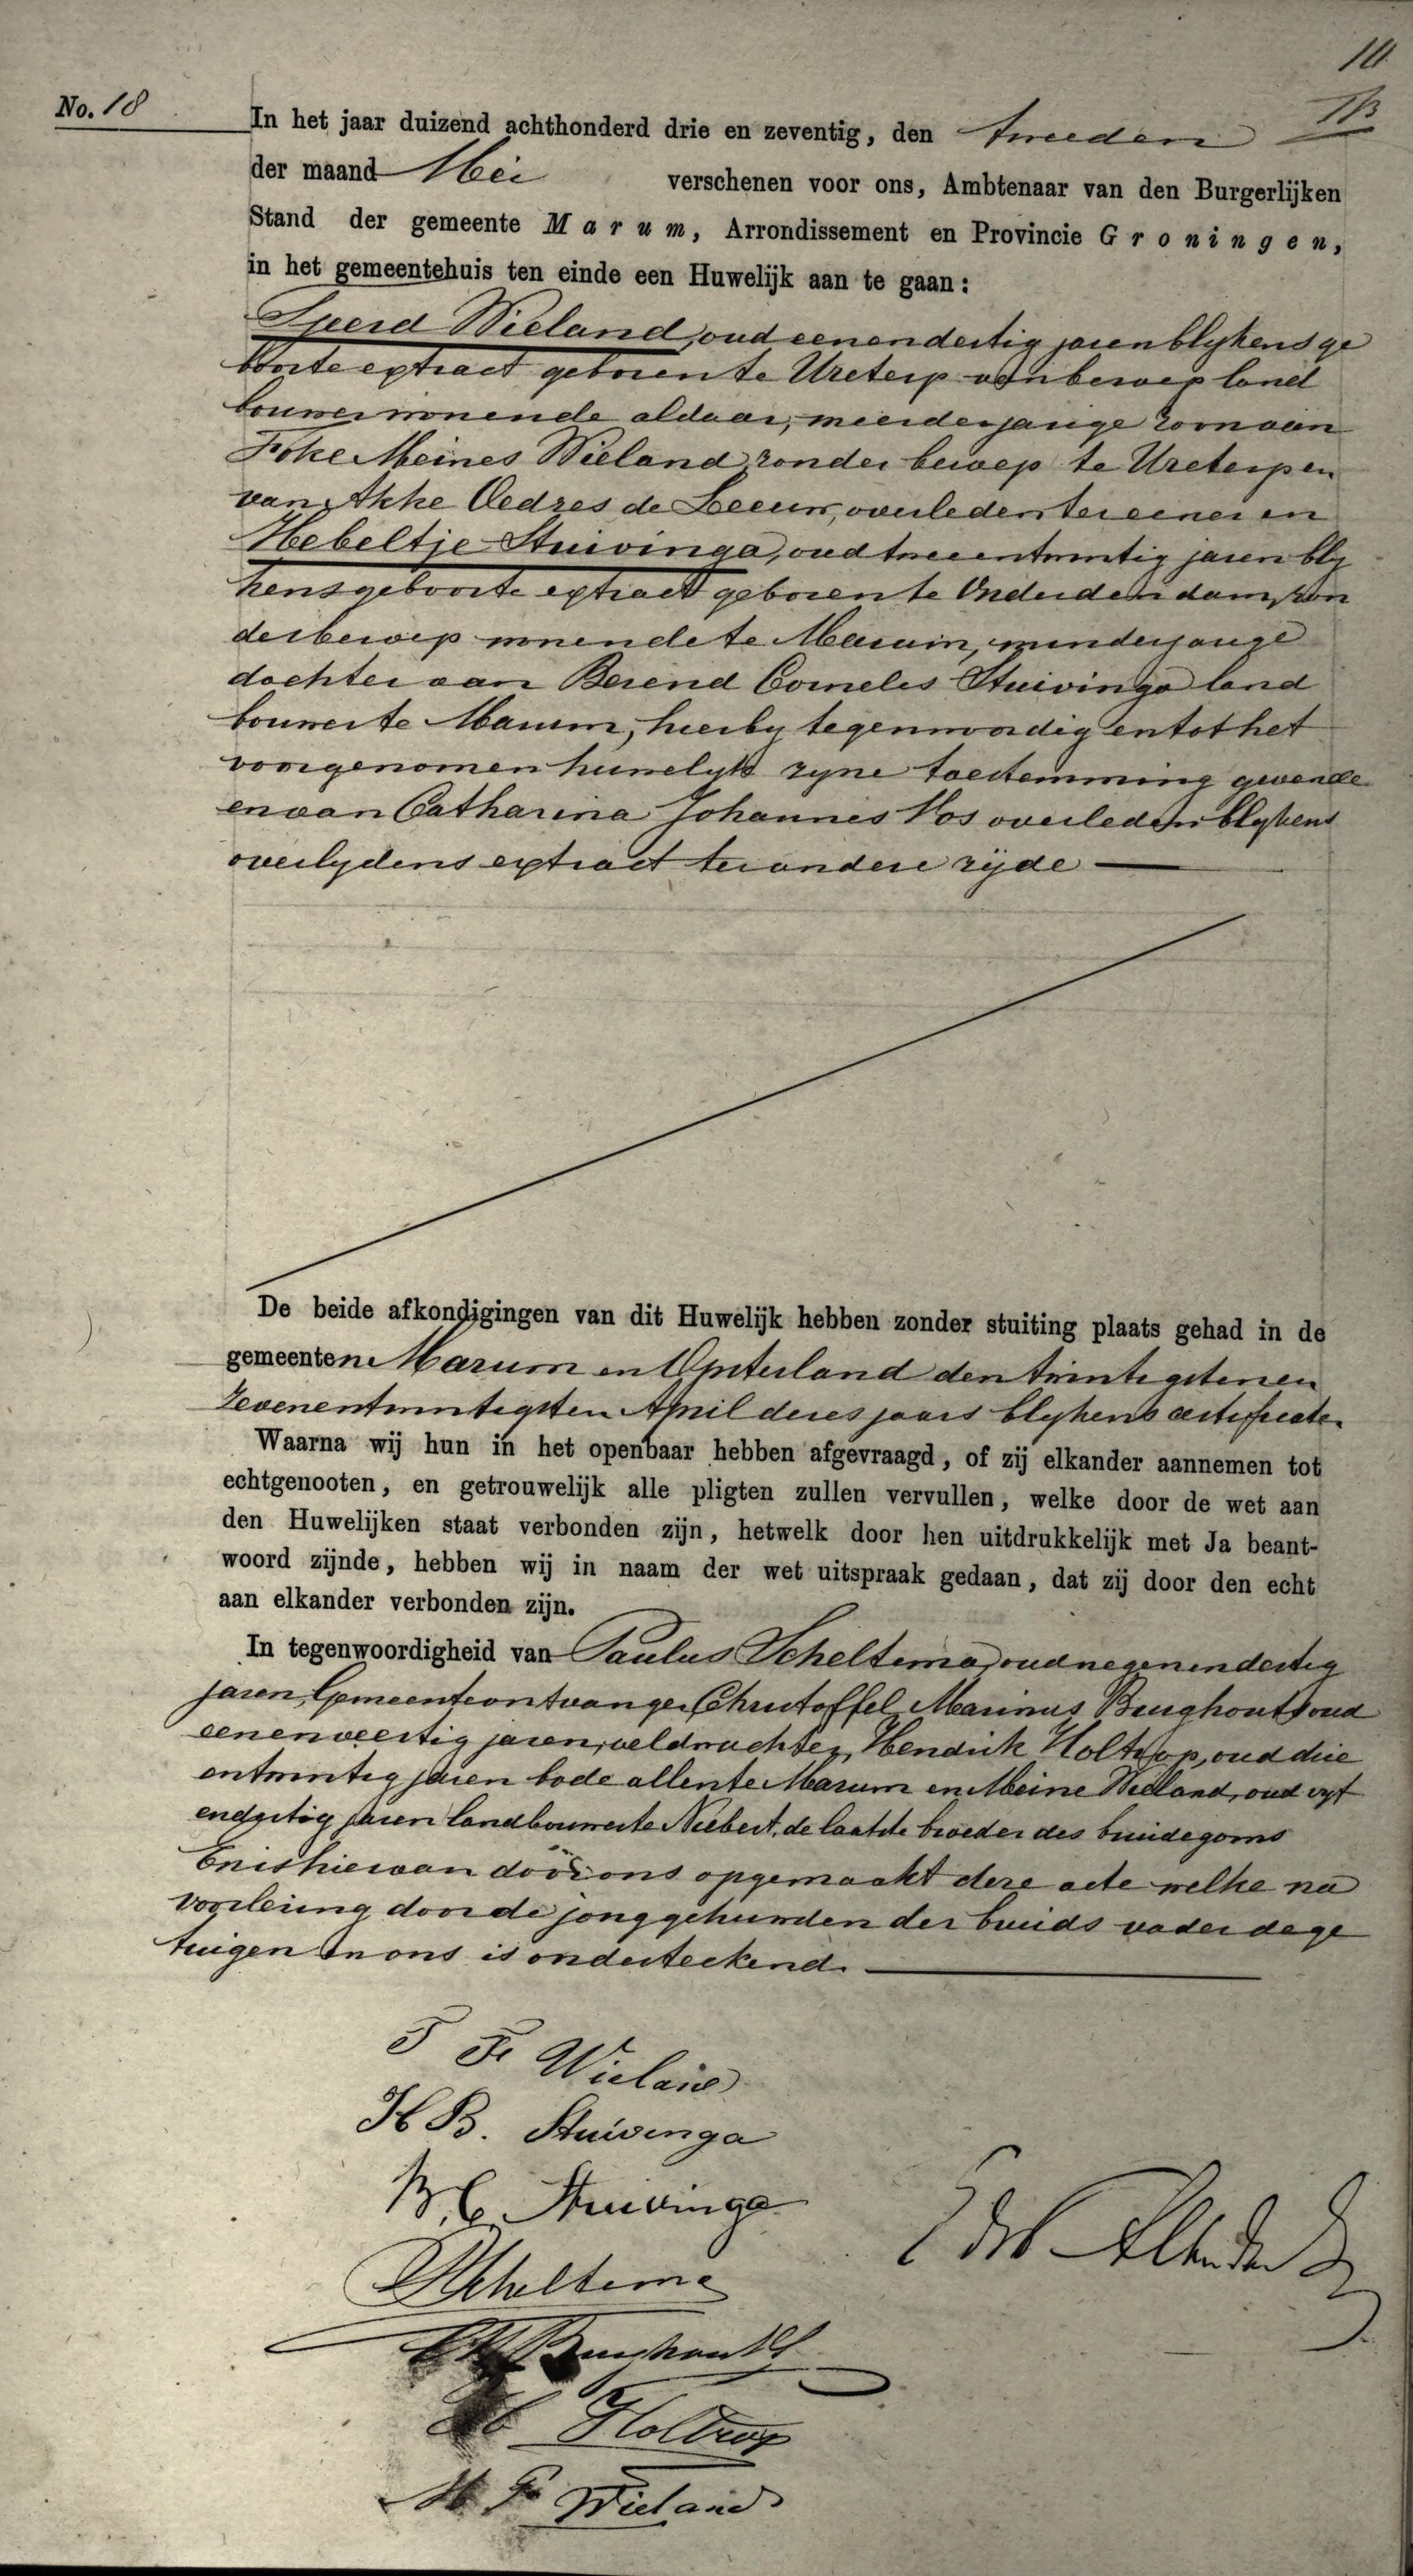 10
No. 18
In het jaar duizend achthonderd drie en zeventig, den tweeden
der maand Mei verschenen voor ons, Ambtenaar van den Burgerlijken
Stand der gemeente Marum, Arrondissement en Provincie Groningen,
in het gemeentehuis ten einde een Huwelijk aan te gaan:
Sjeerd Wieland, oud eenendertig jaren blykens ge
boorte extract geboren te Ureterp van beroep land
bouwer wonende aldaar, meerderjarige zoon van
Foke Meines Wieland zonder beroep te Ureterp en
van Akke Oedzes de Leeuw, overleden ter eener en
Hebeltje Stuivinga, oud tweeentwintig jaren bly
kens geboorte extract geboren te Onderdendam, zon
der beroep wonende te Marum, minderjarige
dochter van Berend Cornelis Stuivinga land
bouwer te Marum, hierby tegenwoordig en tot het
voorgenomen huwelyk zyne toestemming gevende
en van Catharina Johannes Vos overleden blykens
overlydens extract ter andere zijde
De beide afkondigingen van dit Huwelijk hebben zonder stuiting plaats gehad in de
gemeenten Marum en Opsterland den twintigsten en
zevenentwintigsten April dezes jaars blykens certificate.
Waarna wij hun in het openbaar hebben afgevraagd, of zij elkander aannemen tot
echtgenooten, en getrouwelijk alle pligten zullen vervullen, welke door de wet aan
den Huwelijken staat verbonden zijn, hetwelk door hen uitdrukkelijk met Ja beant-
woord zijnde, hebben wij in naam der wet uitspraak gedaan, dat zij door den echt
aan elkander verbonden zijn.
In tegenwoordigheid van Paulus Scheltema, oud negenendertig
jaren, Gemeenteontvanger, Christoffel Marinus Brughout, oud
eenenveertig jaren, veldwachter, Hendrik Holtrop, oud drie
entwintig jaren bode allen te Marum en Meine Wieland, oud vyf
endertig jaren landbouwer te Niebert, de laatste broeder des bruidegoms
En is hiervan door ons opgemaakt deze acte welke na
voorlezing door de jonggehuwden der bruids vader de ge
tuigen en ons is onderteekend.
S F Wieland
H B. Stuivinga
B. C. Stuivinga
P Scheltema
CM Brughout
H Holtrop
M F Wieland